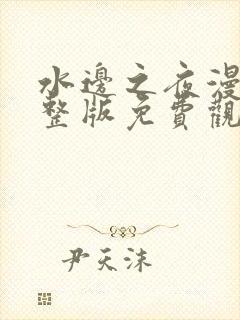 水邊之夜漫
整版免費觀
尹天沫